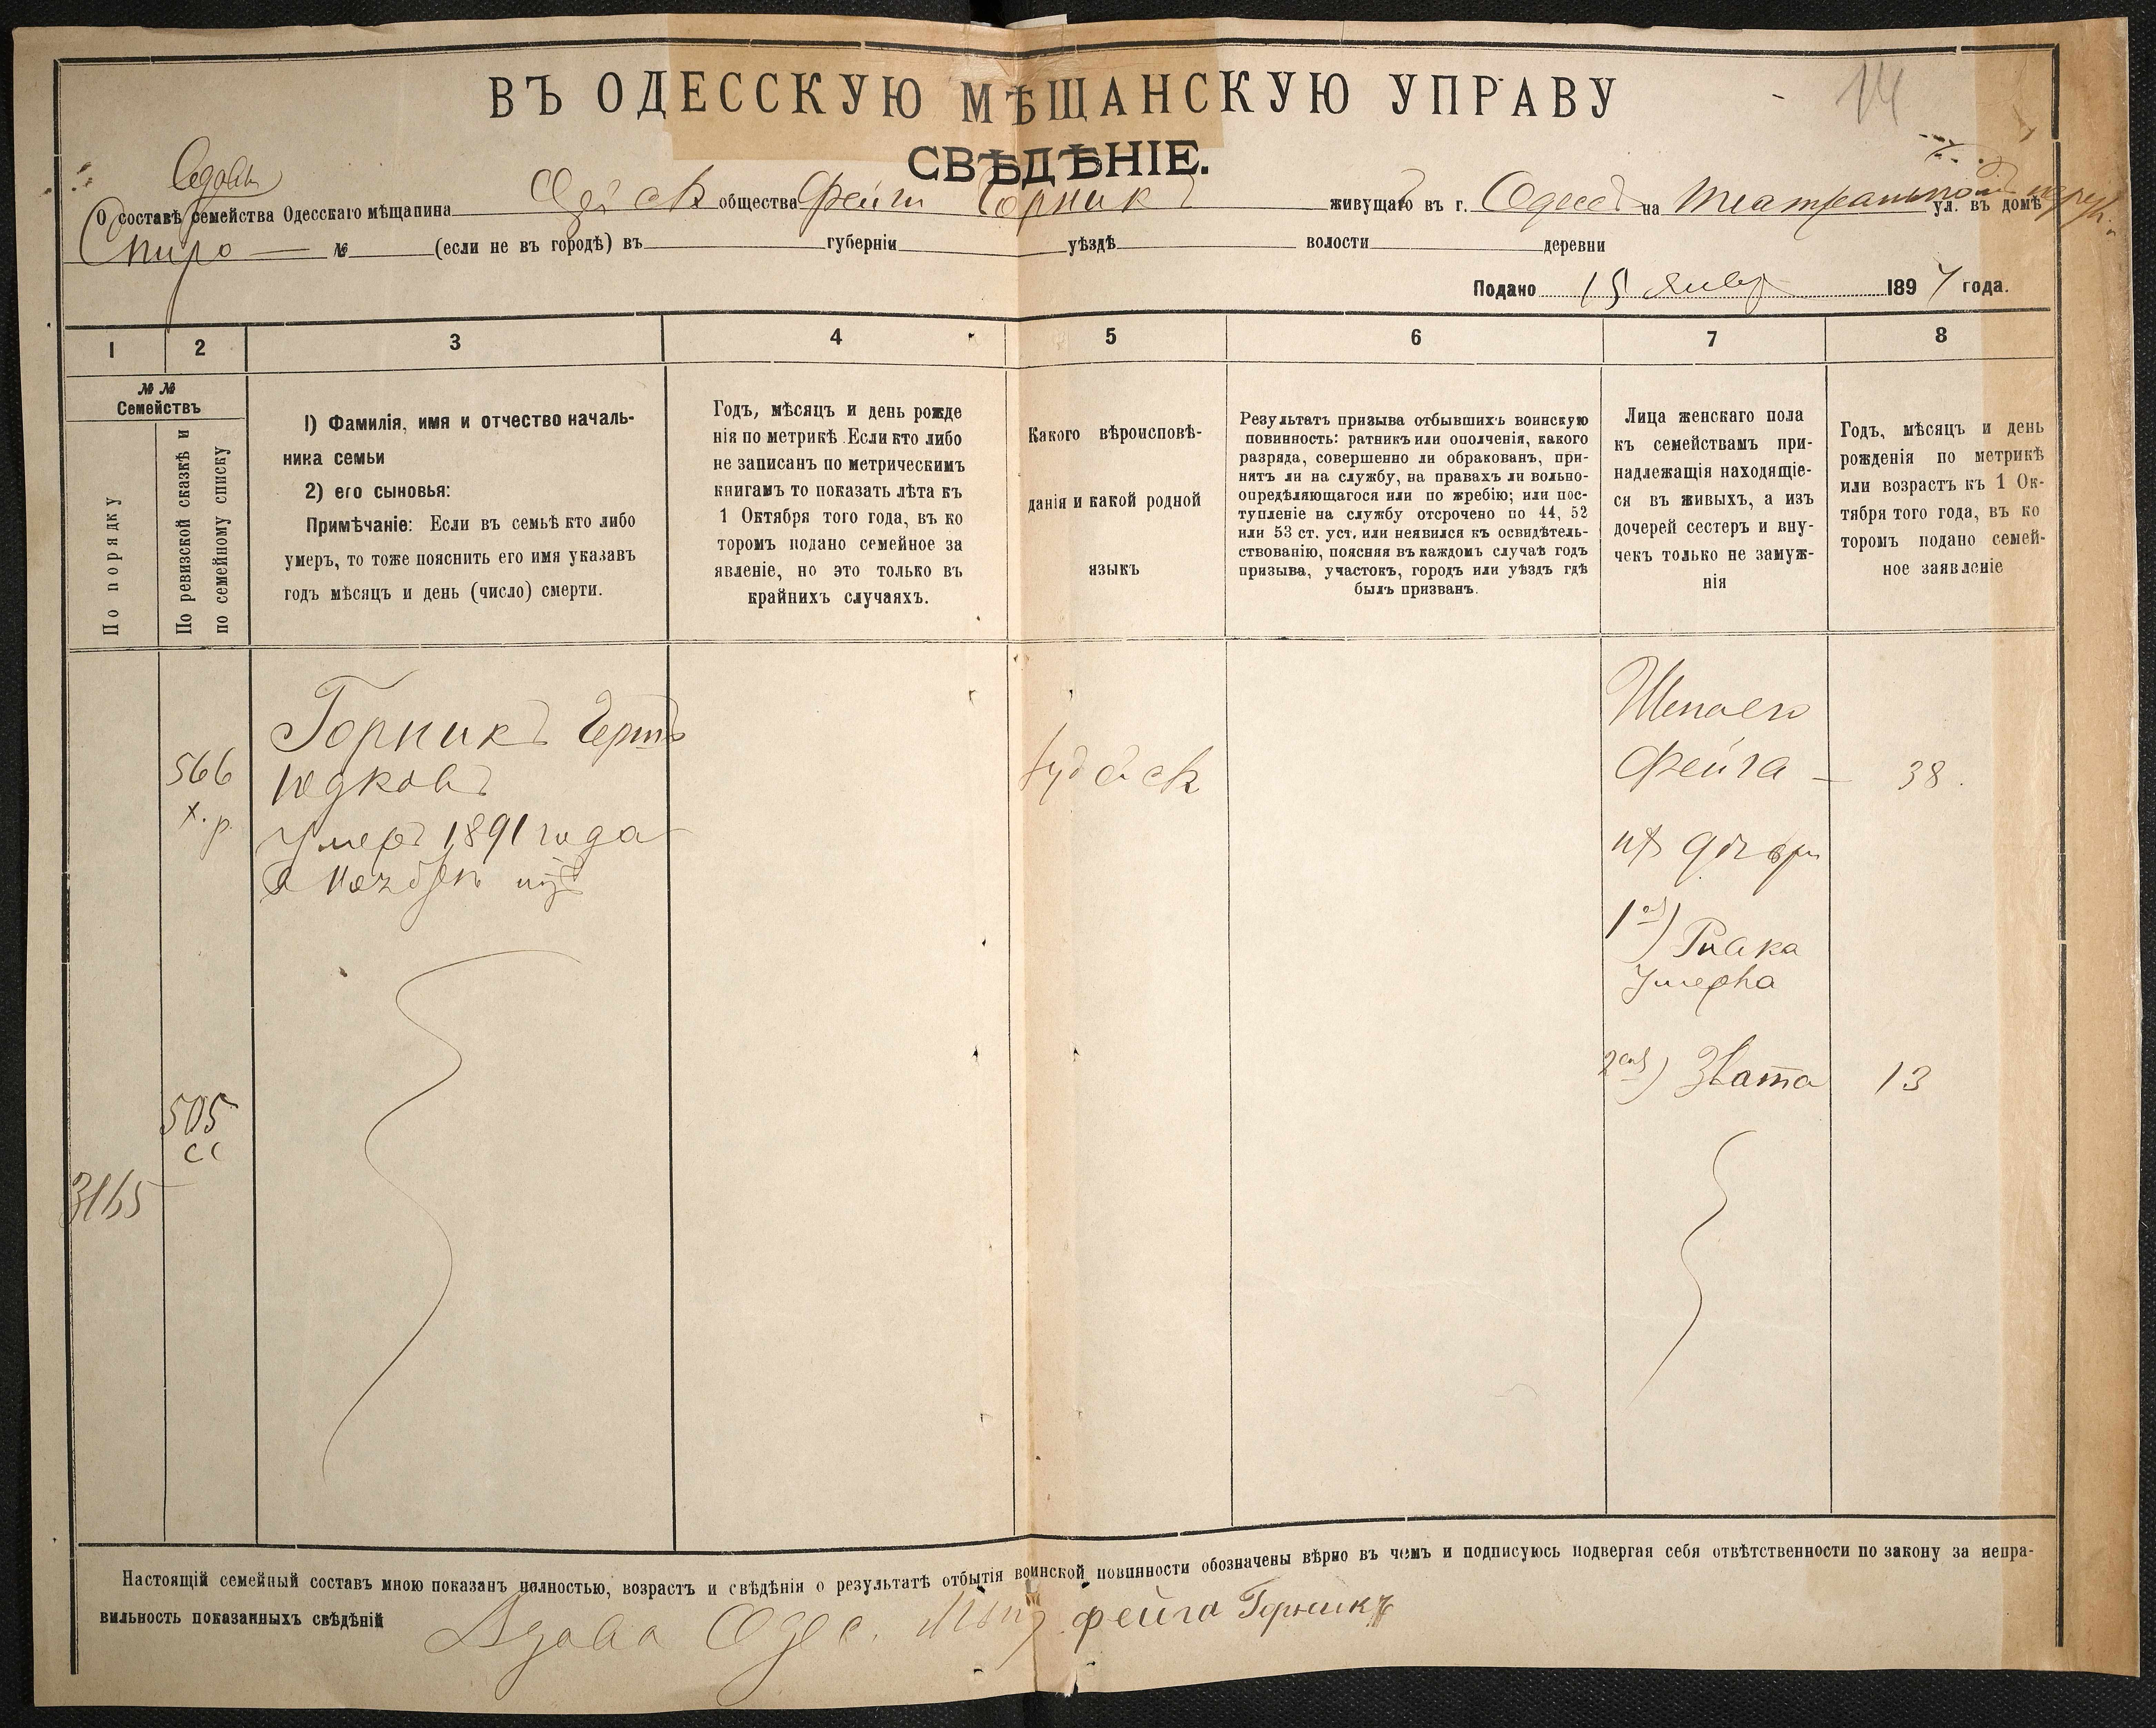 14
ВЪ ОДЕССКУЮ МѢЩАНСКУЮ УПРАВУ
СВѢДѢНІЕ.
О составѣ семейства Одесскаго мѣщанина общества Фейги Горникъ живущаго въ г. Одессѣ на Театральной ул. въ домѣ
Спиро № (если не въ городѣ) въ губерніи уѣздѣ волости деревни
Подано 15 Январ 1897 года.
1 2 3 4 5 6 7 8
№ №
Семействъ
По порядку
По ревизской сказкѣ и
по семейному списку
1) Фамилія, имя и отчество началь-
ника семьи
2) его сыновья:
Примѣчаніе: Если въ семьѣ кто либо
умеръ, то тоже пояснить его имя указавъ
годъ мѣсяцъ и день (число) смерти.
Годъ, мѣсяцъ и день рожде
нія по метрикѣ. Если кто либо
не записанъ по метрическимъ
книгамъ то показать лѣта къ
1 Октября того года, въ ко
торомъ подано семейное за
явленіе, но это только въ
крайнихъ случаяхъ.
Какого вѣроисповѣ-
данія и какой родной
языкъ
Результатъ призыва отбывшихъ воинскую
повинность: ратникъ или ополченія, какого
разряда, совершенно ли обракованъ, при-
нятъ ли на службу, на правахъ ли вольно-
опредѣляющагося или по жребію; или пос-
тупленіе на службу отсрочено по 44, 52
или 53 ст. уст. или неявился къ освидѣтель-
ствованію, поясняя въ каждомъ случаѣ годъ
призыва, участокъ, городъ или уѣздъ гдѣ
былъ призванъ.
Лица женскаго пола
къ семействамъ при-
надлежащія находящіе-
ся въ живыхъ, а изъ
дочерей сестеръ и вну-
чекъ только не замуж-
нія
Годъ, мѣсяцъ и день
рожденія по метрикѣ
или возрастъ къ 1 Ок-
тября того года, въ ко
торомъ подано семей-
ное заявленіе
566
х. р.
Горникъ
умеръ 1891 года
Іудейск
Жена его
Фейга — 38.
ихъ дочери
1ая)
умерла
2ая) Злата 13
505
сс
3165
Настоящій семейный составъ мною показанъ полностью, возрастъ и свѣдѣнія о результатѣ отбытія воинской повинности обозначены вѣрно въ чемъ и подписуюсь подвергая себя отвѣтственности по закону за непра-
вильность показанныхъ свѣдѣній Вдова Одес. Мѣщ. Фейга Горникъ